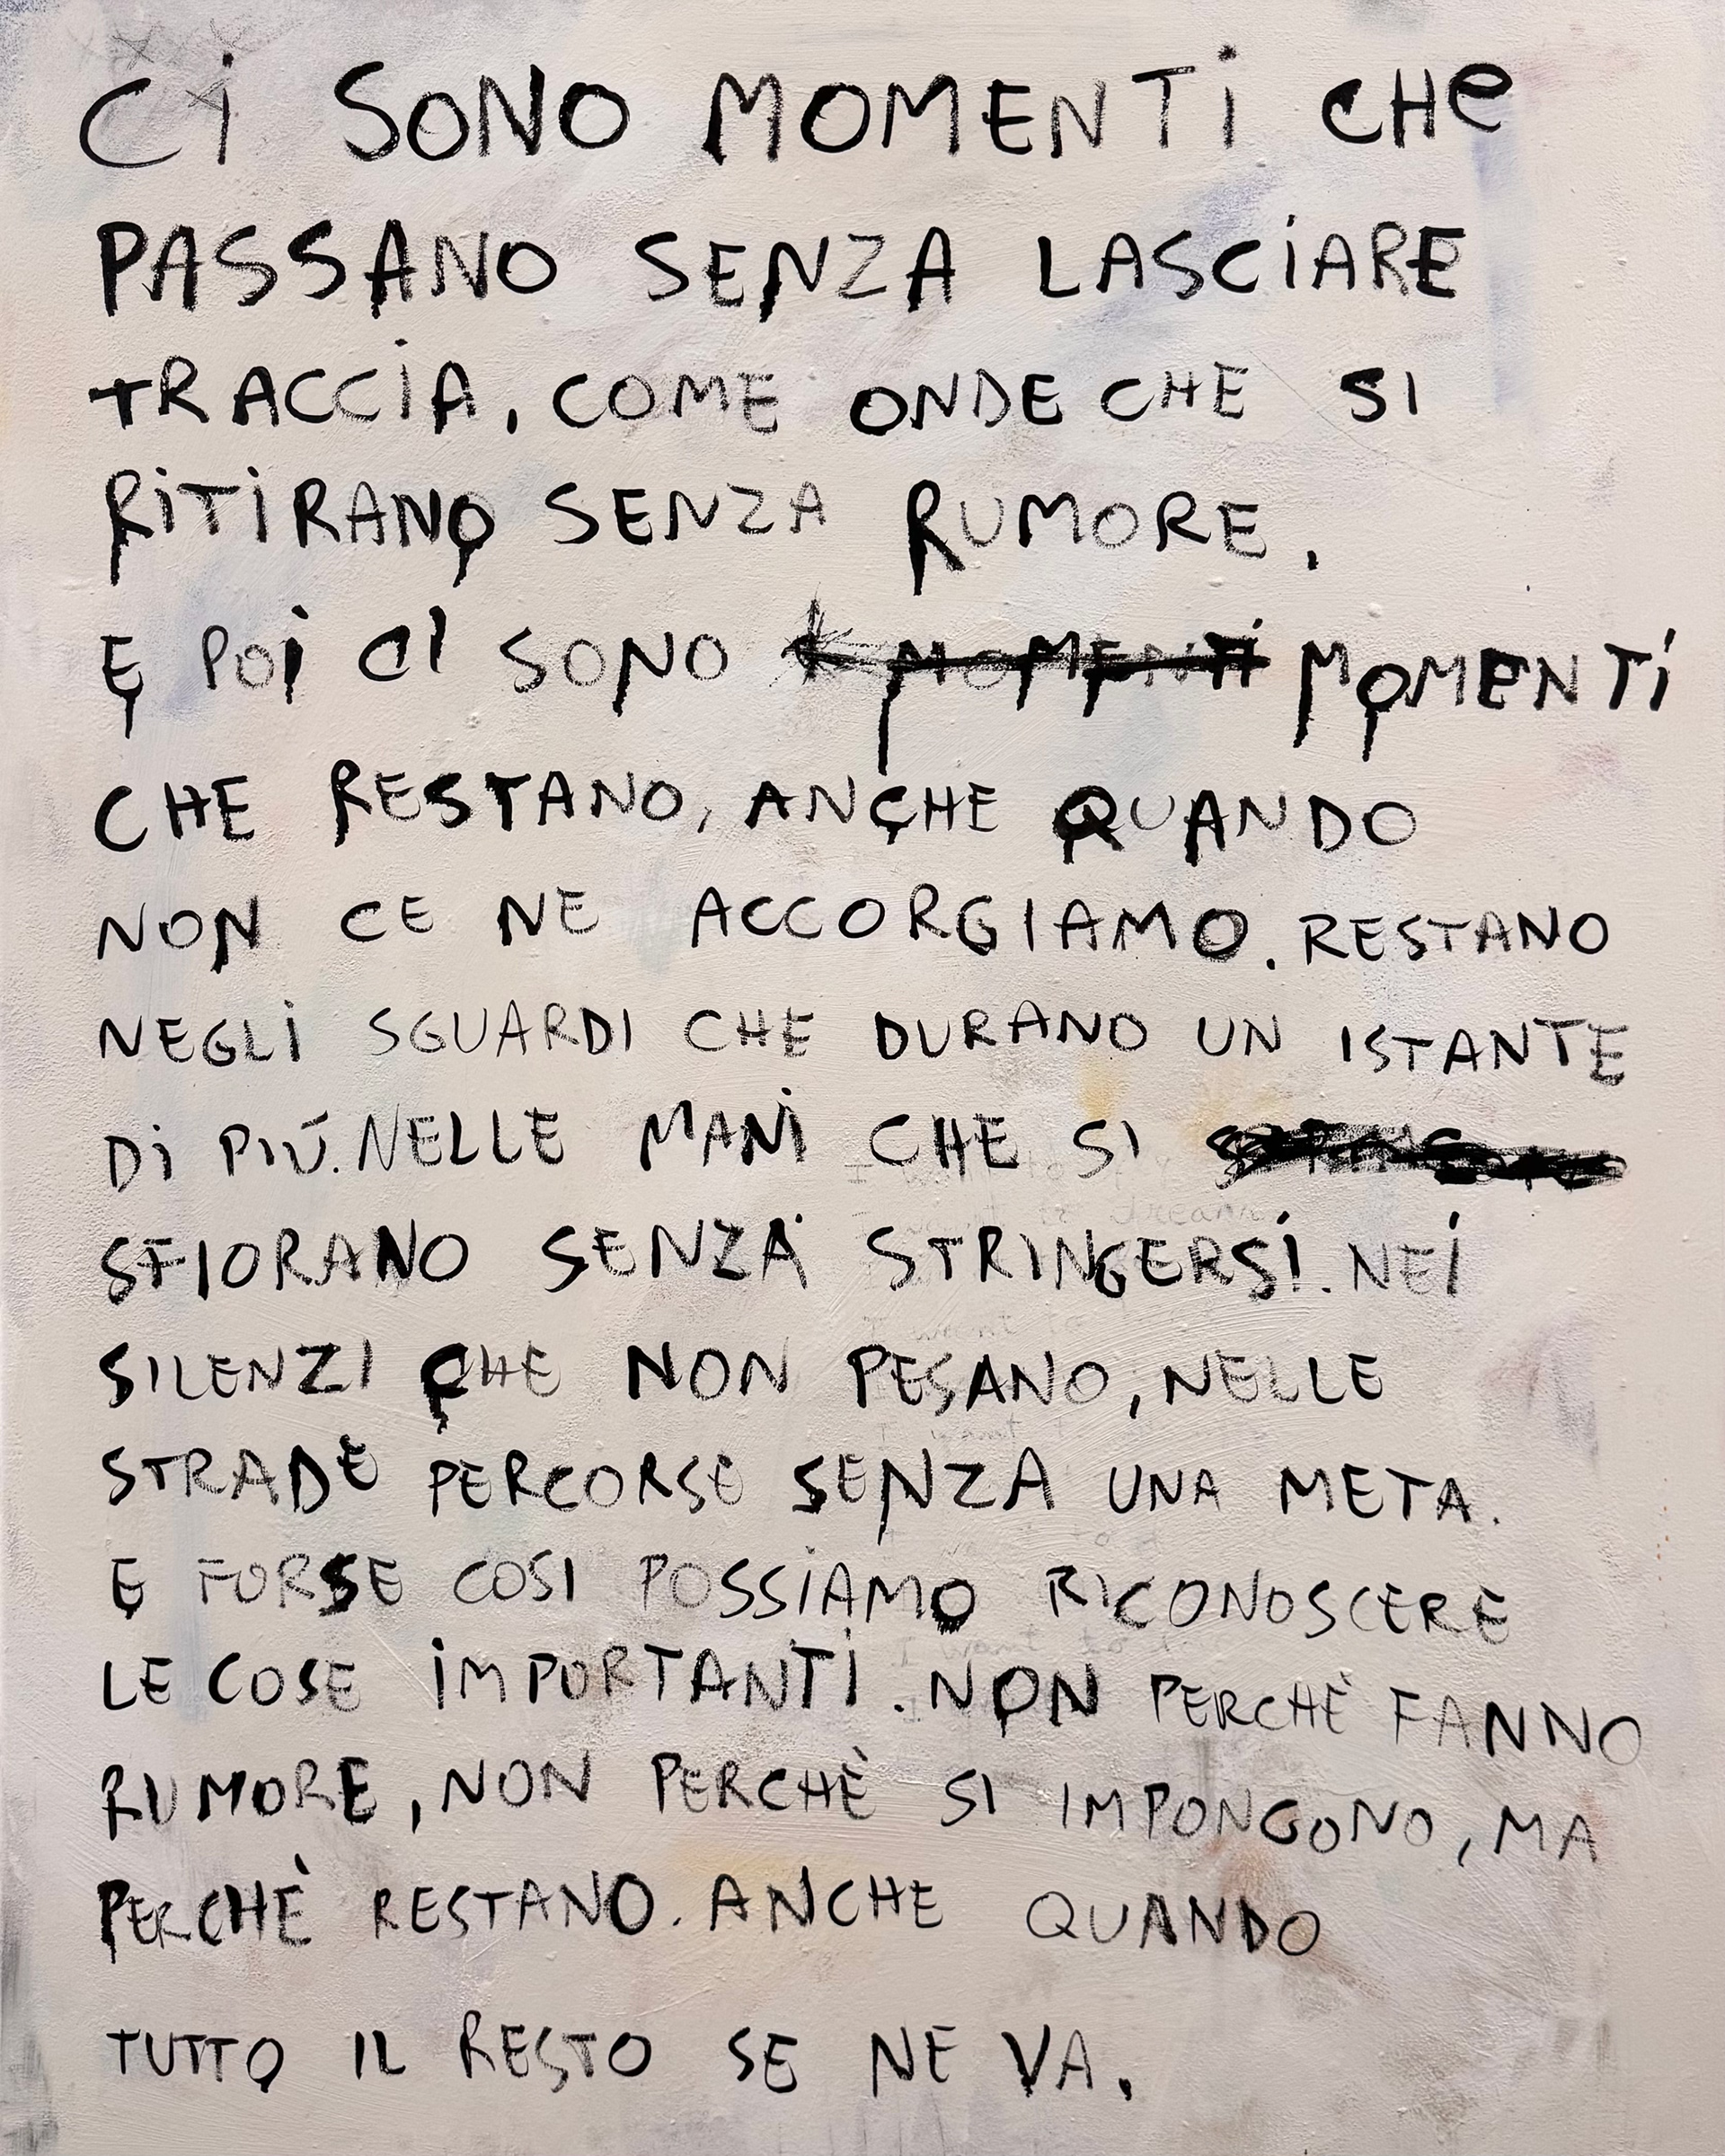 Ci SONO MOMENTi CHe
PASSANO SENZA LASCiARE
TRACCiA, COME ONDE CHE SI
RiTiRANO SENZA RUMORE.
E POi CI SONO MOMENTI MOMENTi
CHE RESTANO, ANCHE QUANDO
NON CE NE ACCORGIAMO. RESTANO
NEGLi SGUARDI CHE DURANO UN ISTANTE
Di PIÚ. NELLE MANi CHE SI
SFIORANO SENZA STRINGERSi. NEi
SILENZI CHE NON PESANO, NELLE
STRADE PERCORSE SENZA UNA META.
E FORSE COSI POSSiAMO RICONOSCERE
LE COSE iMPORTANTi. NON PERCHÈ FANNO
RUMORE, NON PERCHÈ SI IMPONGONO, MA
PERCHÈ RESTANO. ANCHE QUANDO
TUTTO IL RESTO SE NE VA.